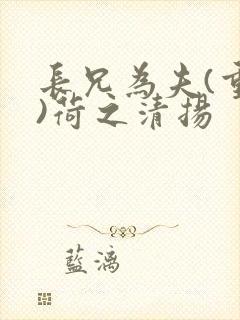 長兄為夫(重
)荷之清揚
藍漓